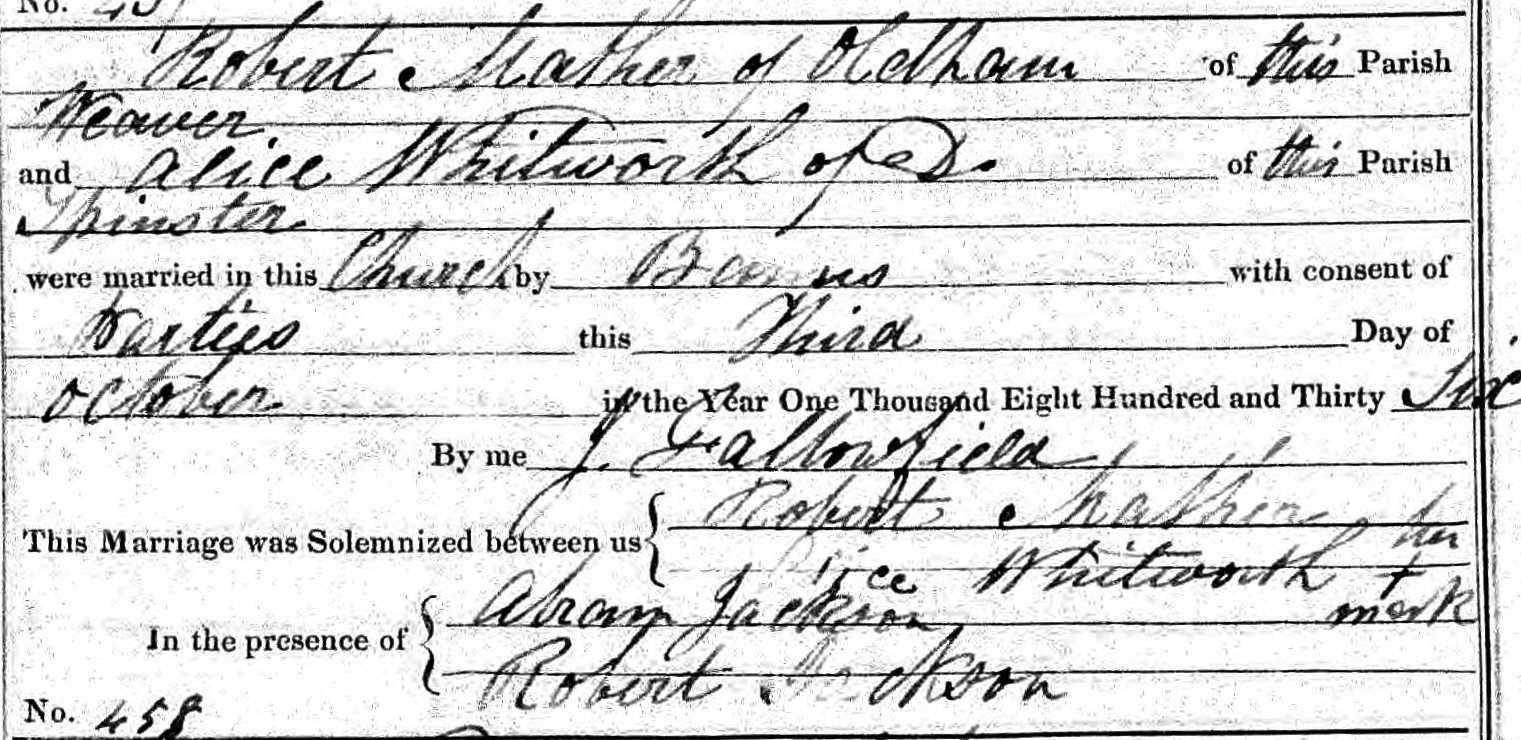 No. 45
Robert Mather of Oldham of this Parish
Weaver
and Alice Whitworth of Do. of this Parish
Spinster
were married in this Church by Banns with consent of
Parties this Third Day of
October in the Year One Thousand Eight Hundred and Thirty Six
By me J. Fallowfield
This Marriage was Solemnized between us { Robert Mather
Alice Whitworth her + mark
In the presence of { Abram Jackson
Robert Jackson
No. 458